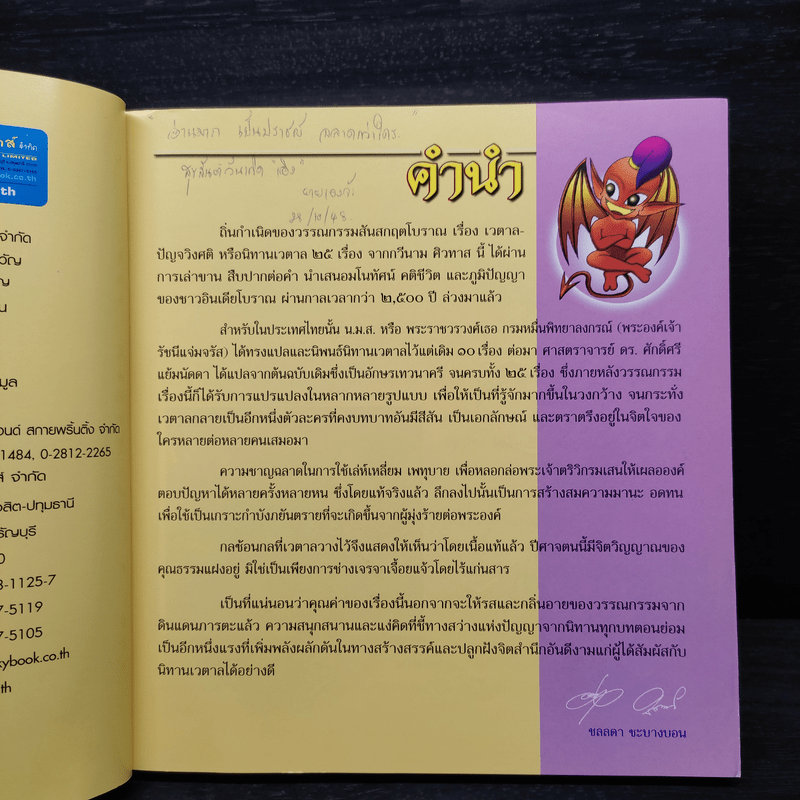 าส์ จำกัด
LIMITED
book.co.th
th
จำกัด
วัญ
ญ
น
มูล
อนด์ สกายพริ้นติ้ง จำกัด
1484, 0-2812-2265
ส์ จำกัด
งสิต-ปทุมธานี
รัญบุรี
0
3-1125-7
7-5119
7-5105
kybook.co.th
th
อ่านมาก เป็นปราชญ์ ฉลาดกว่าใคร
สุขสันต์วันเกิด
28/10/48.
คำนำ
ถิ่นกำเนิดของวรรณกรรมสันสกฤตโบราณ เรื่อง เวตาล-
ปัญจวิงศติ หรือนิทานเวตาล ๒๕ เรื่อง จากกวีนาม ศิวทาส นี้ ได้ผ่าน
การเล่าขาน สืบปากต่อคำ นำเสนอมโนทัศน์ คติชีวิต และภูมิปัญญา
ของชาวอินเดียโบราณ ผ่านกาลเวลากว่า ๒,๕๐๐ ปี ล่วงมาแล้ว
สำหรับในประเทศไทยนั้น น.ม.ส. หรือ พระราชวรวงศ์เธอ กรมหมื่นพิทยาลงกรณ์ (พระองค์เจ้า
รัชนีแจ่มจรัส) ได้ทรงแปลและนิพนธ์นิทานเวตาลไว้แต่เดิม ๑๐ เรื่อง ต่อมา ศาสตราจารย์ ดร. ศักดิ์ศรี
แย้มนัดดา ได้แปลจากต้นฉบับเดิมซึ่งเป็นอักษรเทวนาครี จนครบทั้ง ๒๕ เรื่อง ซึ่งภายหลังวรรณกรรม
เรื่องนี้ก็ได้รับการแปรแปลงในหลากหลายรูปแบบ เพื่อให้เป็นที่รู้จักมากขึ้นในวงกว้าง จนกระทั่ง
เวตาลกลายเป็นอีกหนึ่งตัวละครที่คงบทบาทอันมีสีสัน เป็นเอกลักษณ์ และตราตรึงอยู่ในจิตใจของ
ใครหลายต่อหลายคนเสมอมา
ความชาญฉลาดในการใช้เล่ห์เหลี่ยม เพทุบาย เพื่อหลอกล่อพระเจ้าตริวิกรมเสนให้เผลอองค์
ตอบปัญหาได้หลายครั้งหลายหน ซึ่งโดยแท้จริงแล้ว ลึกลงไปนั้นเป็นการสร้างสมความมานะ อดทน
เพื่อใช้เป็นเกราะกำบังภยันตรายที่จะเกิดขึ้นจากผู้มุ่งร้ายต่อพระองค์
กลซ้อนกลที่เวตาลวางไว้จึงแสดงให้เห็นว่าโดยเนื้อแท้แล้ว ปีศาจตนนี้มีจิตวิญญาณของ
คุณธรรมแฝงอยู่ มิใช่เป็นเพียงการช่างเจรจาเจื้อยแจ้วโดยไร้แก่นสาร
เป็นที่แน่นอนว่าคุณค่าของเรื่องนี้นอกจากจะให้รสและกลิ่นอายของวรรณกรรมจาก
ดินแดนภารตะแล้ว ความสนุกสนานและแง่คิดที่ชี้ทางสว่างแห่งปัญญาจากนิทานทุกบทตอนย่อม
เป็นอีกหนึ่งแรงที่เพิ่มพลังผลักดันในทางสร้างสรรค์และปลูกฝังจิตสำนึกอันดีงามแก่ผู้ได้สัมผัสกับ
นิทานเวตาลได้อย่างดี
ชลลดา ชะบางบอน